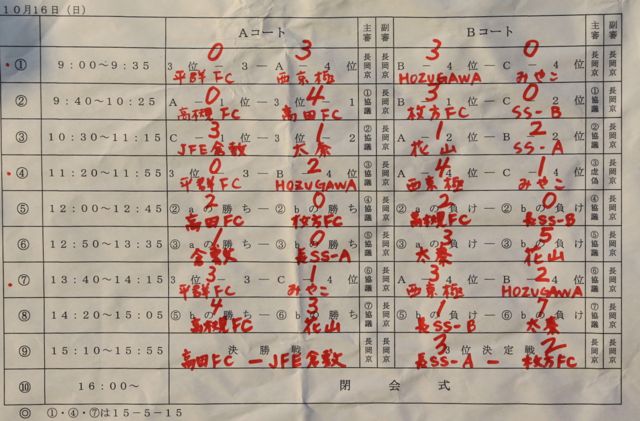 10月16日（日）
Aコート 主審 副審 Bコート 主審 副審
① 9:00～9:35 3位－3－A－4位 長岡京 長岡京 B－4位－C－4位 長岡京 長岡京
0 3 3 0
平群FC 西京極 HOZUGAWA みやこ
② 9:40～10:25 A－1位－3－1 ①協議 長岡京 B－1位－C－2位 ①協議 長岡京
0 4 3 0
高槻FC 高田FC 枚方FC SS-B
③ 10:30～11:15 C－1位－3－2 ②協議 長岡京 A－2位－B－2位 ②協議 長岡京
3 1 1 2
JFE倉敷 太秦 花山 SS-A
④ 11:20～11:55 3位－3－B－4位 ③協議 長岡京 A－4位－C－4位 ③ 長岡京
0 2 4 1
平群FC HOZUGAWA 西京極 みやこ
⑤ 12:00～12:45 ②aの勝ち－②bの勝ち ④協議 長岡京 ②aの負け－②bの負け ④協議 長岡京
2 0 2 0
高田FC 枚方FC 高槻FC 長SS-B
⑥ 12:50～13:35 ③aの勝ち－③bの勝ち ⑤協議 長岡京 ③aの負け－③bの負け ⑤協議 長岡京
1 0 3 5
倉敷 長SS-A 太秦 花山
⑦ 13:40～14:15 3位－3－C－4位 ⑥協議 長岡京 A－4位－B－4位 ⑥協議 長岡京
3 1 3 2
平群FC みやこ 西京極 HOZUGAWA
⑧ 14:20～15:05 ⑤bの勝ち－⑥bの勝ち ⑦協議 長岡京 ⑤bの負け－⑥bの負け ⑦協議 長岡京
4 3 1 7
高槻FC 花山 長SS-B 太秦
⑨ 15:10～15:55 決勝戦 長岡京 長岡京 3位決定戦 長岡京 長岡京
3 2
高田FC－JFE倉敷 長SS-A－枚方FC
⑩ 16:00～ 閉会式
◎ ①・④・⑦は15－5－15